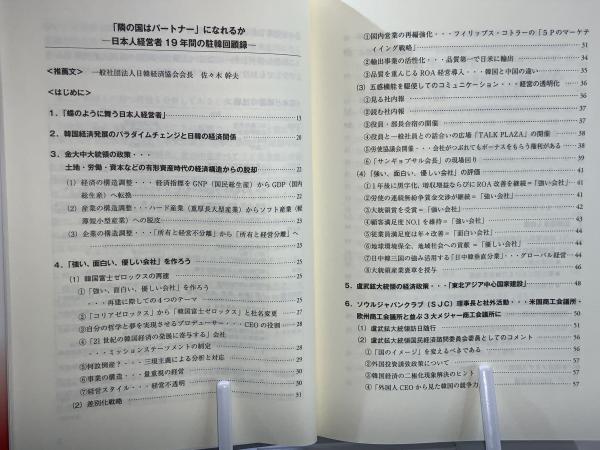 「隣の国はパートナー」になれるか
―日本人経営者19年間の駐韓回顧録―
<推薦文> 一般社団法人日韓経済協会会長 佐々木 幹夫
<はじめに>
1.「蝶のように舞う日本人経営者」 13
2.韓国経済発展のパラダイムチェンジと日韓の経済関係 20
3.金大中大統領の政策・・・
土地・労働・資本などの有形資産時代の経済構造からの脱却 22
(1) 経済の構造調整・・・経済指標をGNP(国民総生産)からGDP(国内
総生産)へ転換 22
(2) 産業の構造調整・・・ハード産業(重厚長大型産業)からソフト産業(軽
薄短小型産業)への脱皮 23
(3) 企業の構造調整・・・「所有と経営不分離」から「所有と経営分離」へ
23
4.「強い、面白い、優しい会社」を作ろう 25
(1) 韓国富士ゼロックスの再建 25
①「強い、面白い、優しい会社」を作ろう
・・・再建に際しての4つのテーマ 25
②「コリアゼロックス」から「韓国富士ゼロックス」と社名変更 27
③自分の哲学と夢を実現させるプロデューサー・・・CEOの役割 28
④「21世紀の韓国経済の発展に寄与する」会社
・・・ミッションステーツメントの制定
⑤何故倒産?・・・三現主義による分析と対応
⑥事業の構造・・・量重視の経営
⑦経営スタイル・・・経営不透明
(2) 差別化戦略
①国内営業の再編強化・・・フィリップス・コトラーの「5Pのマーケテ
ィイング戦略」 31
②輸出事業の活性化・・・品質第一で日米に輸出 34
③品質を重んじるROA経営導入・・・韓国と中国の違い 35
(3) 五感機能を駆使してのコミュニケーション・・・経営の透明化 36
①見る社内報 36
②読む社内報 37
③役員・部長合宿の開催 37
④役員と一般社員との話合いの広場「TALK PLAZA」の開催 38
⑤労使協議会開催・・・会社がつぶれてもボーナスをもらう権利がある 38
⑥「サンギョプサル会長」の現場回り 39
(4) 「強い、面白い、優しい会社」の評価 41
①1年後に黒字化、増収増益ならびにROA改善を継続=「強い会社」 41
②労使の連続無紛争賃金交渉が継続=「強い会社」 41
③大統領賞を受賞=「強い会社」 42
④顧客満足度NO.1を維持=「強い会社」 43
⑤従業員満足度は年々改善=「面白い会社」 43
⑥地球環境保全、地域社会への貢献=「優しい会社」 44
⑦日中韓三国の強み活用する「日中韓垂直分業」・・・グローバル経営 44
⑧大統領産業褒章を授与 46
5.盧武鉉大統領の経済政策・・・「東北アジア中心国家建設」 48
6.ソウルジャパンクラブ(SJC)理事長と社外活動・・・米国商工会議所・
欧州商工会議所と並ぶ3大メジャー商工会議所に 50
(1) 盧武鉉大統領訪日随行 51
(2) 盧武鉉大統領国民経済諮問委員会委員としてのコメント 56
①「国のイメージ」を変えるべきである 56
②外国投資誘致政策について 57
③韓国経済の二極化現象解決のヒント 57
④「外国人CEOから見た韓国の競争力 57